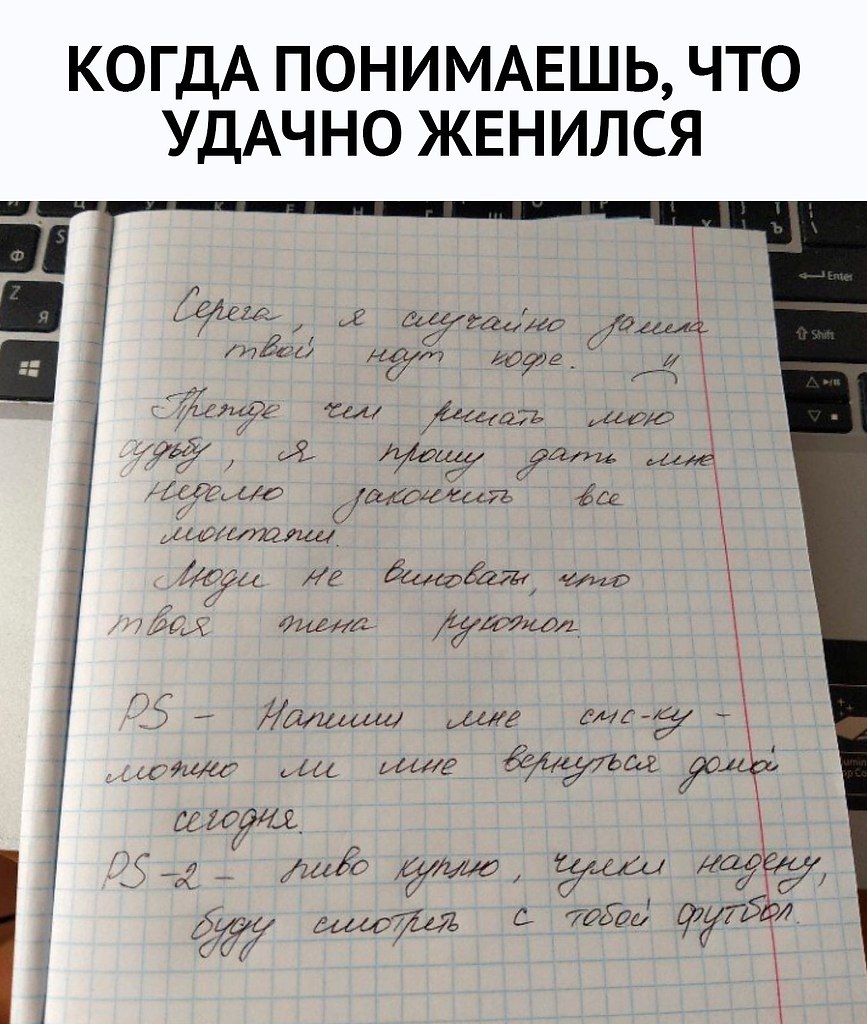 КОГДА ПОНИМАЕШЬ, ЧТО
УДАЧНО ЖЕНИЛСЯ
Серега, я случайно залила
твой ноут кофе.
Прежде чем решать мою
судьбу, я прошу дать мне
неделю закончить все
монтажи.
Люди не виноваты, что
твоя жена рукожоп.
PS - Напиши мне смс-ку -
можно ли мне вернуться домой
сегодня.
PS-2 - пиво куплю, чулки надену,
буду смотреть с тобой футбол.
Ф
S
Z
Я
Enter
Shift